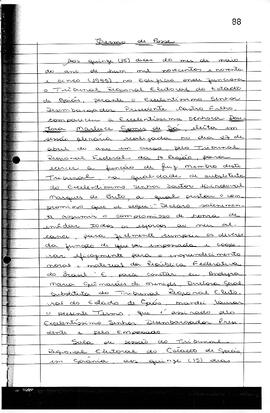 88
Termo de Posse
Aos quinze (15) dias do mês de maio
do ano de hum mil novecentos e noventa
e cinco (1995), no Edifício onde funciona
o Tribunal Regional Eleitoral do Estado
de Goiás, perante o Excelentíssimo Senhor
Desembargador Presidente Castro Filho,
compareceu a Excelentíssima Senhora
eleita em
sessão plenária realizada no dia
de abril do ano em curso pelo Tribunal
Regional Federal da 1ª Região para
exercer a função de Juiz Membro deste
Tribunal na qualidade de substituto
do Excelentíssimo Senhor Doutor
Marques de Brito, a qual prestou o com-
promisso que se segue:
assumir o compromisso de honra de
todos os esforços ao meu al-
cance, para fielmente cumprir os deveres
da função de que fui empossado e coope-
rar eficazmente para o engrandecimento
moral e material da República Federativa
do Brasil. E para constar eu
Maria Guimarães de Diretora Geral
Substituta do Tribunal Regional Eleito-
ral do Estado de Goiás, mandei lavrar
o presente Termo, que é assinado pelo
Excelentíssimo Senhor Desembargador Presi-
dente e pelo Empossado.
Sala de sessão do Tribunal
Regional Eleitoral do Estado de Goiás,
em Goiânia aos quinze (15) dias